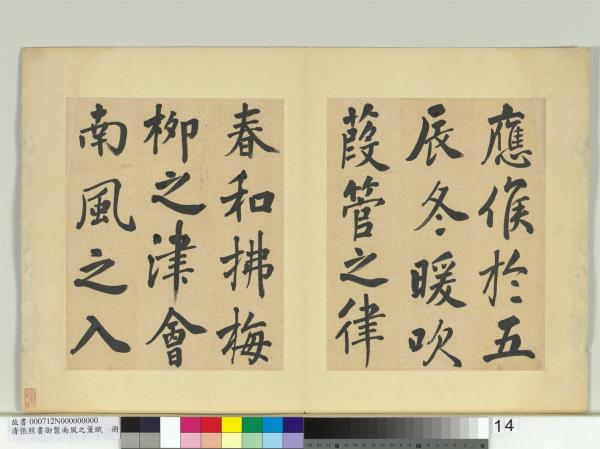 應候於五
辰冬暖吹
葭管之律
春和拂梅
柳之津會
南風之入
故書 000712N000000000
清張照書御製南風之薰賦 冊
14